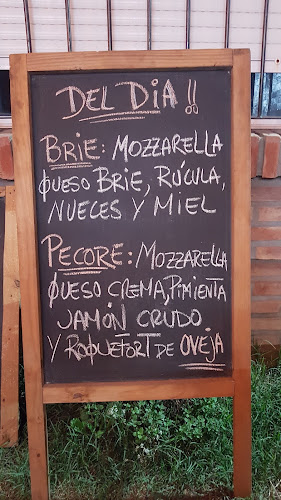 DEL DIA!!
BRIE: MOZZARELLA
QUESO BRIE, RÚCULA,
NUECES Y MIEL
PECORE: MOZZARELLA
QUESO CREMA, PIMIENTA
JAMÓN CRUDO
Y ROQUEFORT DE OVEJA